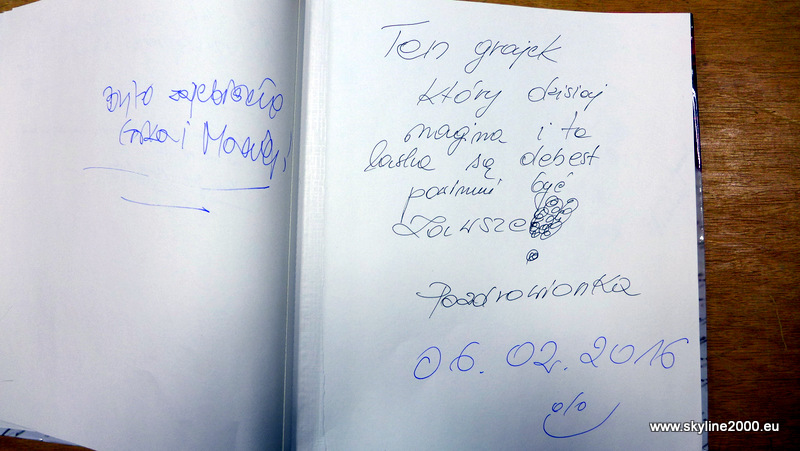 było zajebiście
Eńka i Maciej!
Ten grajek
który dzisiaj
nagina i ta
laska są debest
powinni być
zawsze!
Pozdrowionka
06.02.2016
www.skyline2000.eu